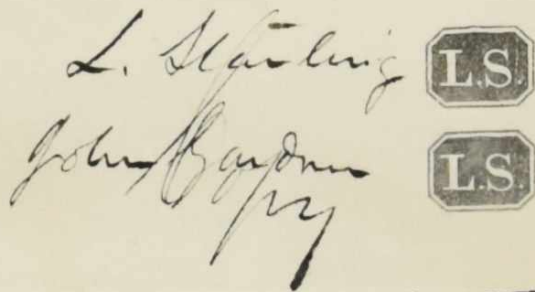 L. Starling L.S.
John Gardner L.S.